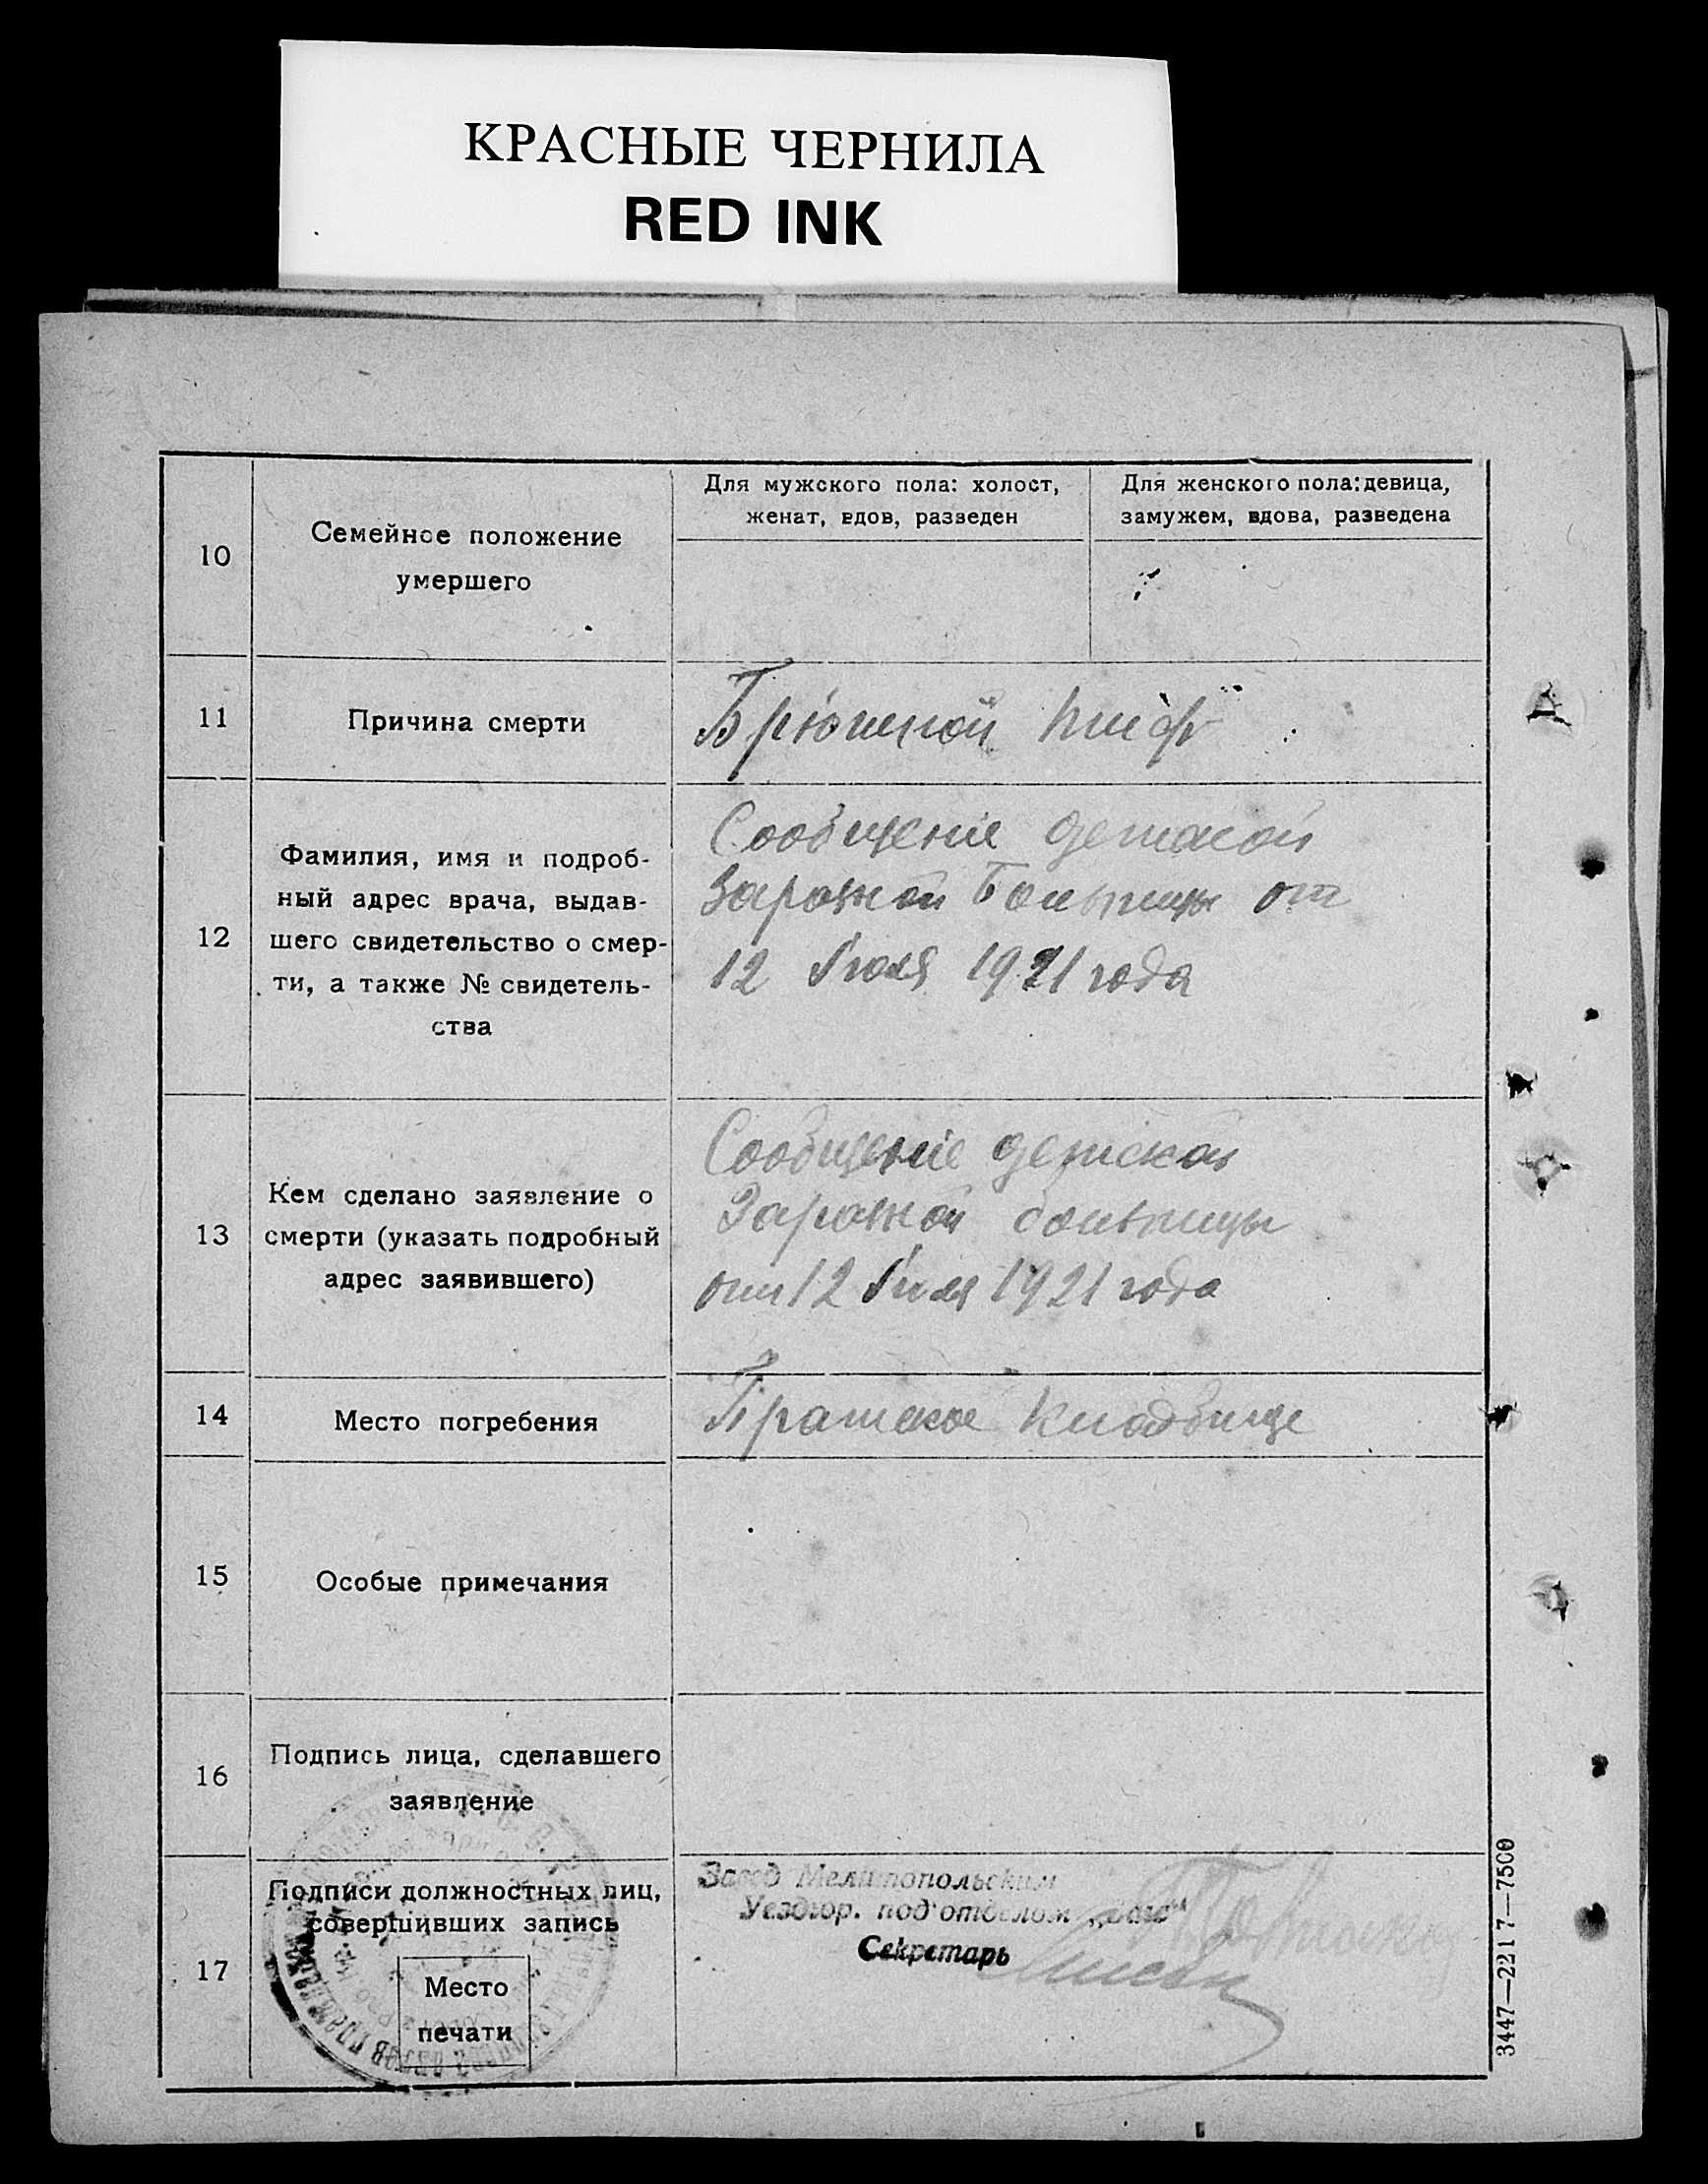 КРАСНЫЕ ЧЕРНИЛА
RED INK
10
Семейное положение
умершего
Для мужского пола: холост,
женат, вдов, разведен
Для женского пола: девица,
замужем, вдова, разведена
11
Причина смерти
Брюшной тиф
12
Фамилия, имя и подроб-
ный адрес врача, выдав-
шего свидетельство о смер-
ти, а также № свидетель-
ства
Сообщеніе детской
Заразной Больницы от
12 Июля 1921 года
13
Кем сделано заявление о
смерти (указать подробный
адрес заявившего)
Сообщеніе детской
Заразной больницы
от 12 Июля 1921 года
14
Место погребения
Братское кладбище
15
Особые примечания
16
Подпись лица, сделавшего
заявление
17
Подписи должностных лиц,
совершивших запись
Место
печати
Мелитопольским
Уездгор. под'отделом
Секретарь
3447—2217—7500